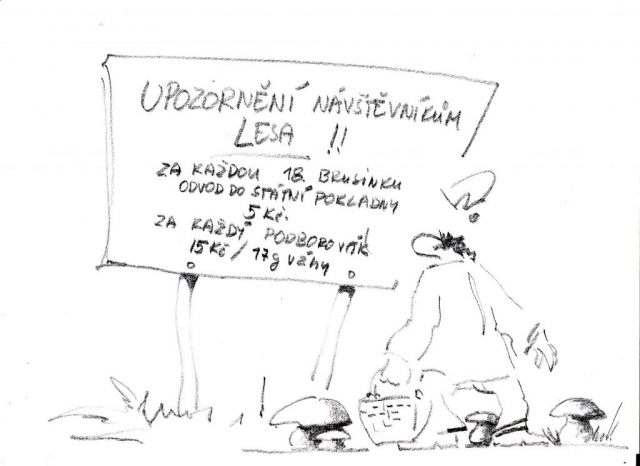 UPOZORNĚNÍ NÁVŠTĚVNÍKŮM
LESA !!
ZA KAŽDOU 18. BRUSINKU
ODVOD DO STÁTNÍ POKLADNY
5 Kč.
ZA KAŽDÝ PODBOROVÁK
15 Kč / 17g VÁHY